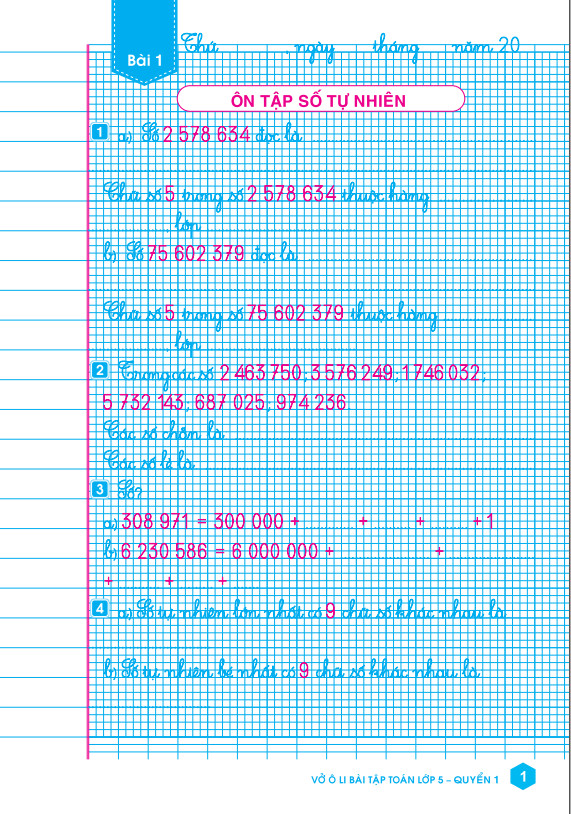 Thứ ngày tháng năm 20
Bài 1
ÔN TẬP SỐ TỰ NHIÊN
1 a) Số 2 578 634 đọc là
Chữ số 5 trong số 2 578 634 thuộc hàng
, lớp
b) Số 75 602 379 đọc là
Chữ số 5 trong số 75 602 379 thuộc hàng
, lớp
2 Trong các số 2 463 750; 3 576 249; 1 746 032;
5 732 143; 687 025; 974 236
Các số chẵn là:
Các số lẻ là:
3 Số?
a) 308 971 = 300 000 + + + + 1
b) 6 230 586 = 6 000 000 + +
+ + +
4 a) Số tự nhiên lớn nhất có 9 chữ số khác nhau là
b) Số tự nhiên bé nhất có 9 chữ số khác nhau là
VỞ Ô LI BÀI TẬP TOÁN LỚP 5 – QUYỂN 1 1